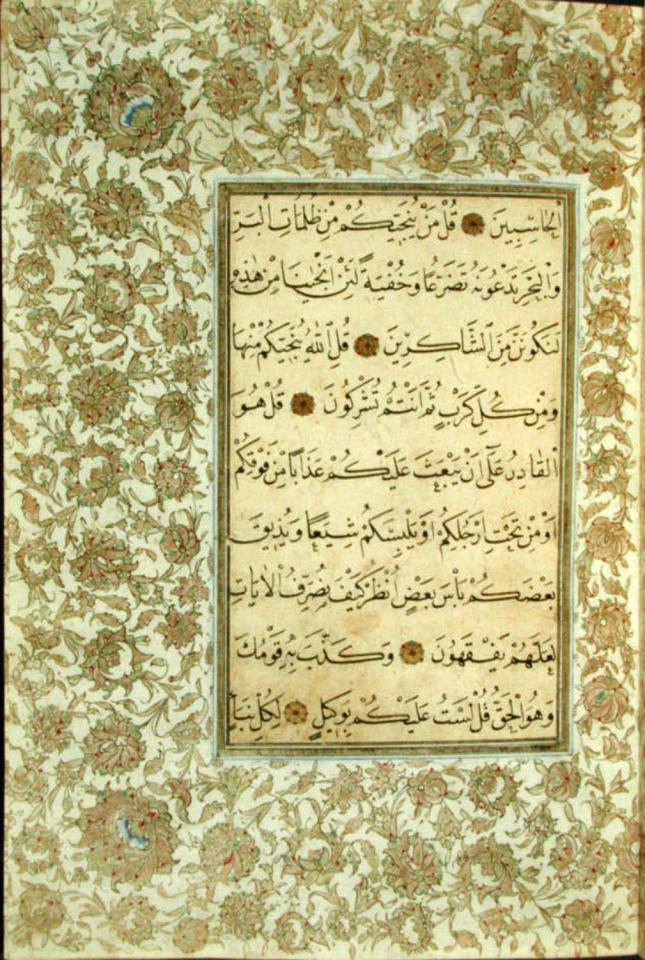 الحَاسِبِينَ قُلْ مَنْ يُنَجِّيكُمْ مِنْ ظُلُمَاتِ الْبَرِّ
وَالْبَحْرِ تَدْعُونَهُ تَضَرُّعًا وَخُفْيَةً لَئِنْ اَنْجَيْنَا مِنْ هٰذِهِ
لَنَكُونَنَّ مِنَ الشَّاكِرِينَ قُلِ اللّٰهُ يُنَجِّيكُمْ مِنْهَا
وَمِنْ كُلِّ كَرْبٍ ثُمَّ اَنْتُمْ تُشْرِكُونَ قُلْ هُوَ
الْقَادِرُ عَلٰٓى اَنْ يَبْعَثَ عَلَيْكُمْ عَذَابًا مِنْ فَوْقِكُمْ
اَوْ مِنْ تَحْتِ اَرْجُلِكُمْ اَوْ يَلْبِسَكُمْ شِيَعًا وَيُذِيقَ
بَعْضَكُمْ بَاْسَ بَعْضٍ اُنْظُرْ كَيْفَ نُصَرِّفُ الْاٰيَاتِ
لَعَلَّهُمْ يَفْقَهُونَ وَكَذَّبَ بِهِ قَوْمُكَ
وَهُوَ الْحَقُّ قُلْ لَسْتُ عَلَيْكُمْ بِوَكِيلٍ لِكُلِّ نَبَاٍ